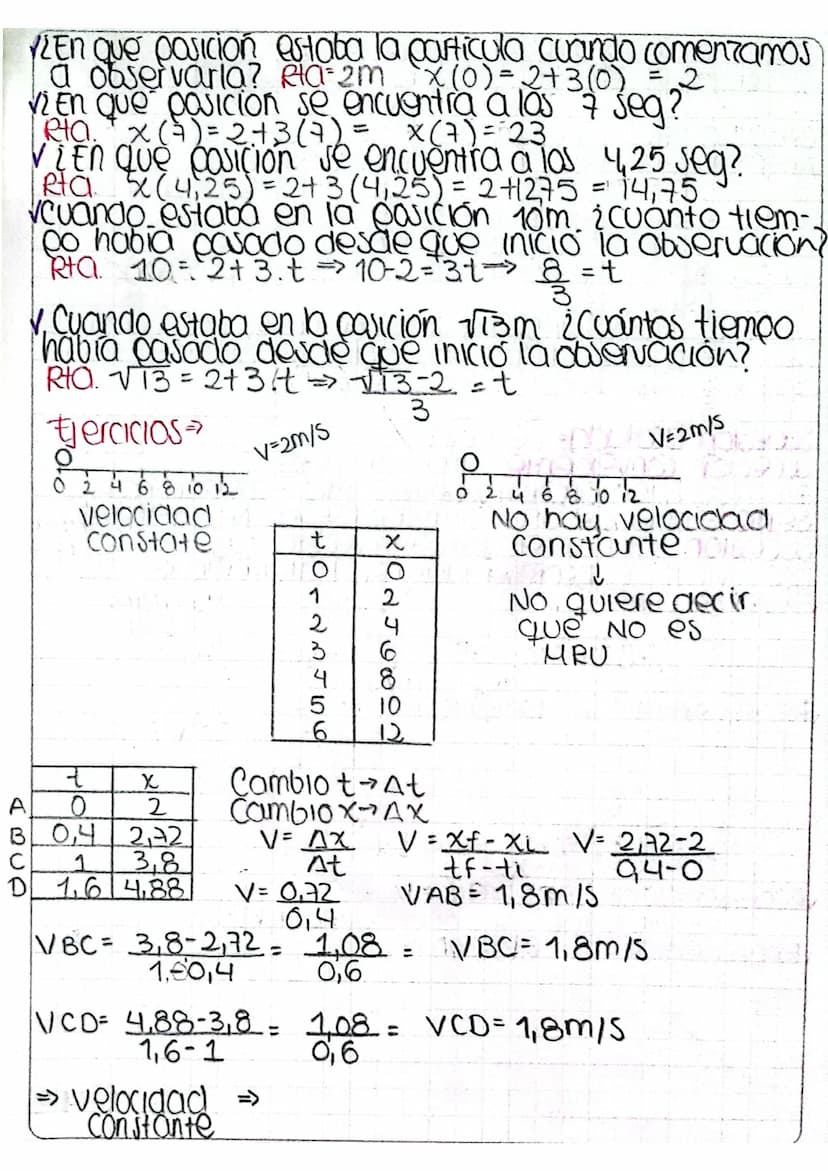 √¿En qué posición estaba la partícula cuando comenzamos
a observarla? Rta=2m x(0)=2+3(0) = 2
√¿En qué posición se encuentra a los 7 seg?
Rta. x(7)=2+3(7)= x(7)=23
√¿En qué posición se encuentra a los 4,25 seg?
Rta. x(4,25)=2+3(4,25)=2+12,75 = 14,75
√cuando estaba en la posición 10m. ¿cuánto tiem-
po había pasado desde que inició la observación?
Rta. 10=2+3.t ⇒ 10-2=3t ⇒ 8/3 = t
√ Cuando estaba en la posición √13m ¿Cuántos tiempo
había pasado desde que inició la observación?
Rta. √13 = 2+3.t ⇒ √13-2/3 = t
Ejercicios ⇒
V=2m/s
0 2 4 6 8 10 12
velocidad
constate
V=2m/s
0 2 4 6 8 10 12
No hay velocidad
constante.
↓
No quiere decir
que NO es
MRU
t x
0 0
1 2
2 4
3 6
4 8
5 10
6 12
t x
A 0 2
B 0,4 2,72
C 1 3,8
D 1,6 4,88
Cambio t → Δt
Cambio x → Δx
V= Δx/Δt V = xf-xi/tf-ti V= 2,72-2/0,4-0
V= 0,72/0,4 VAB = 1,8m/s
VBC = 3,8-2,72/1-0,4 = 1,08/0,6 = VBC = 1,8m/s
VCD= 4,88-3,8/1,6-1 = 1,08/0,6 = VCD = 1,8m/s
⇒ velocidad ⇒
constante